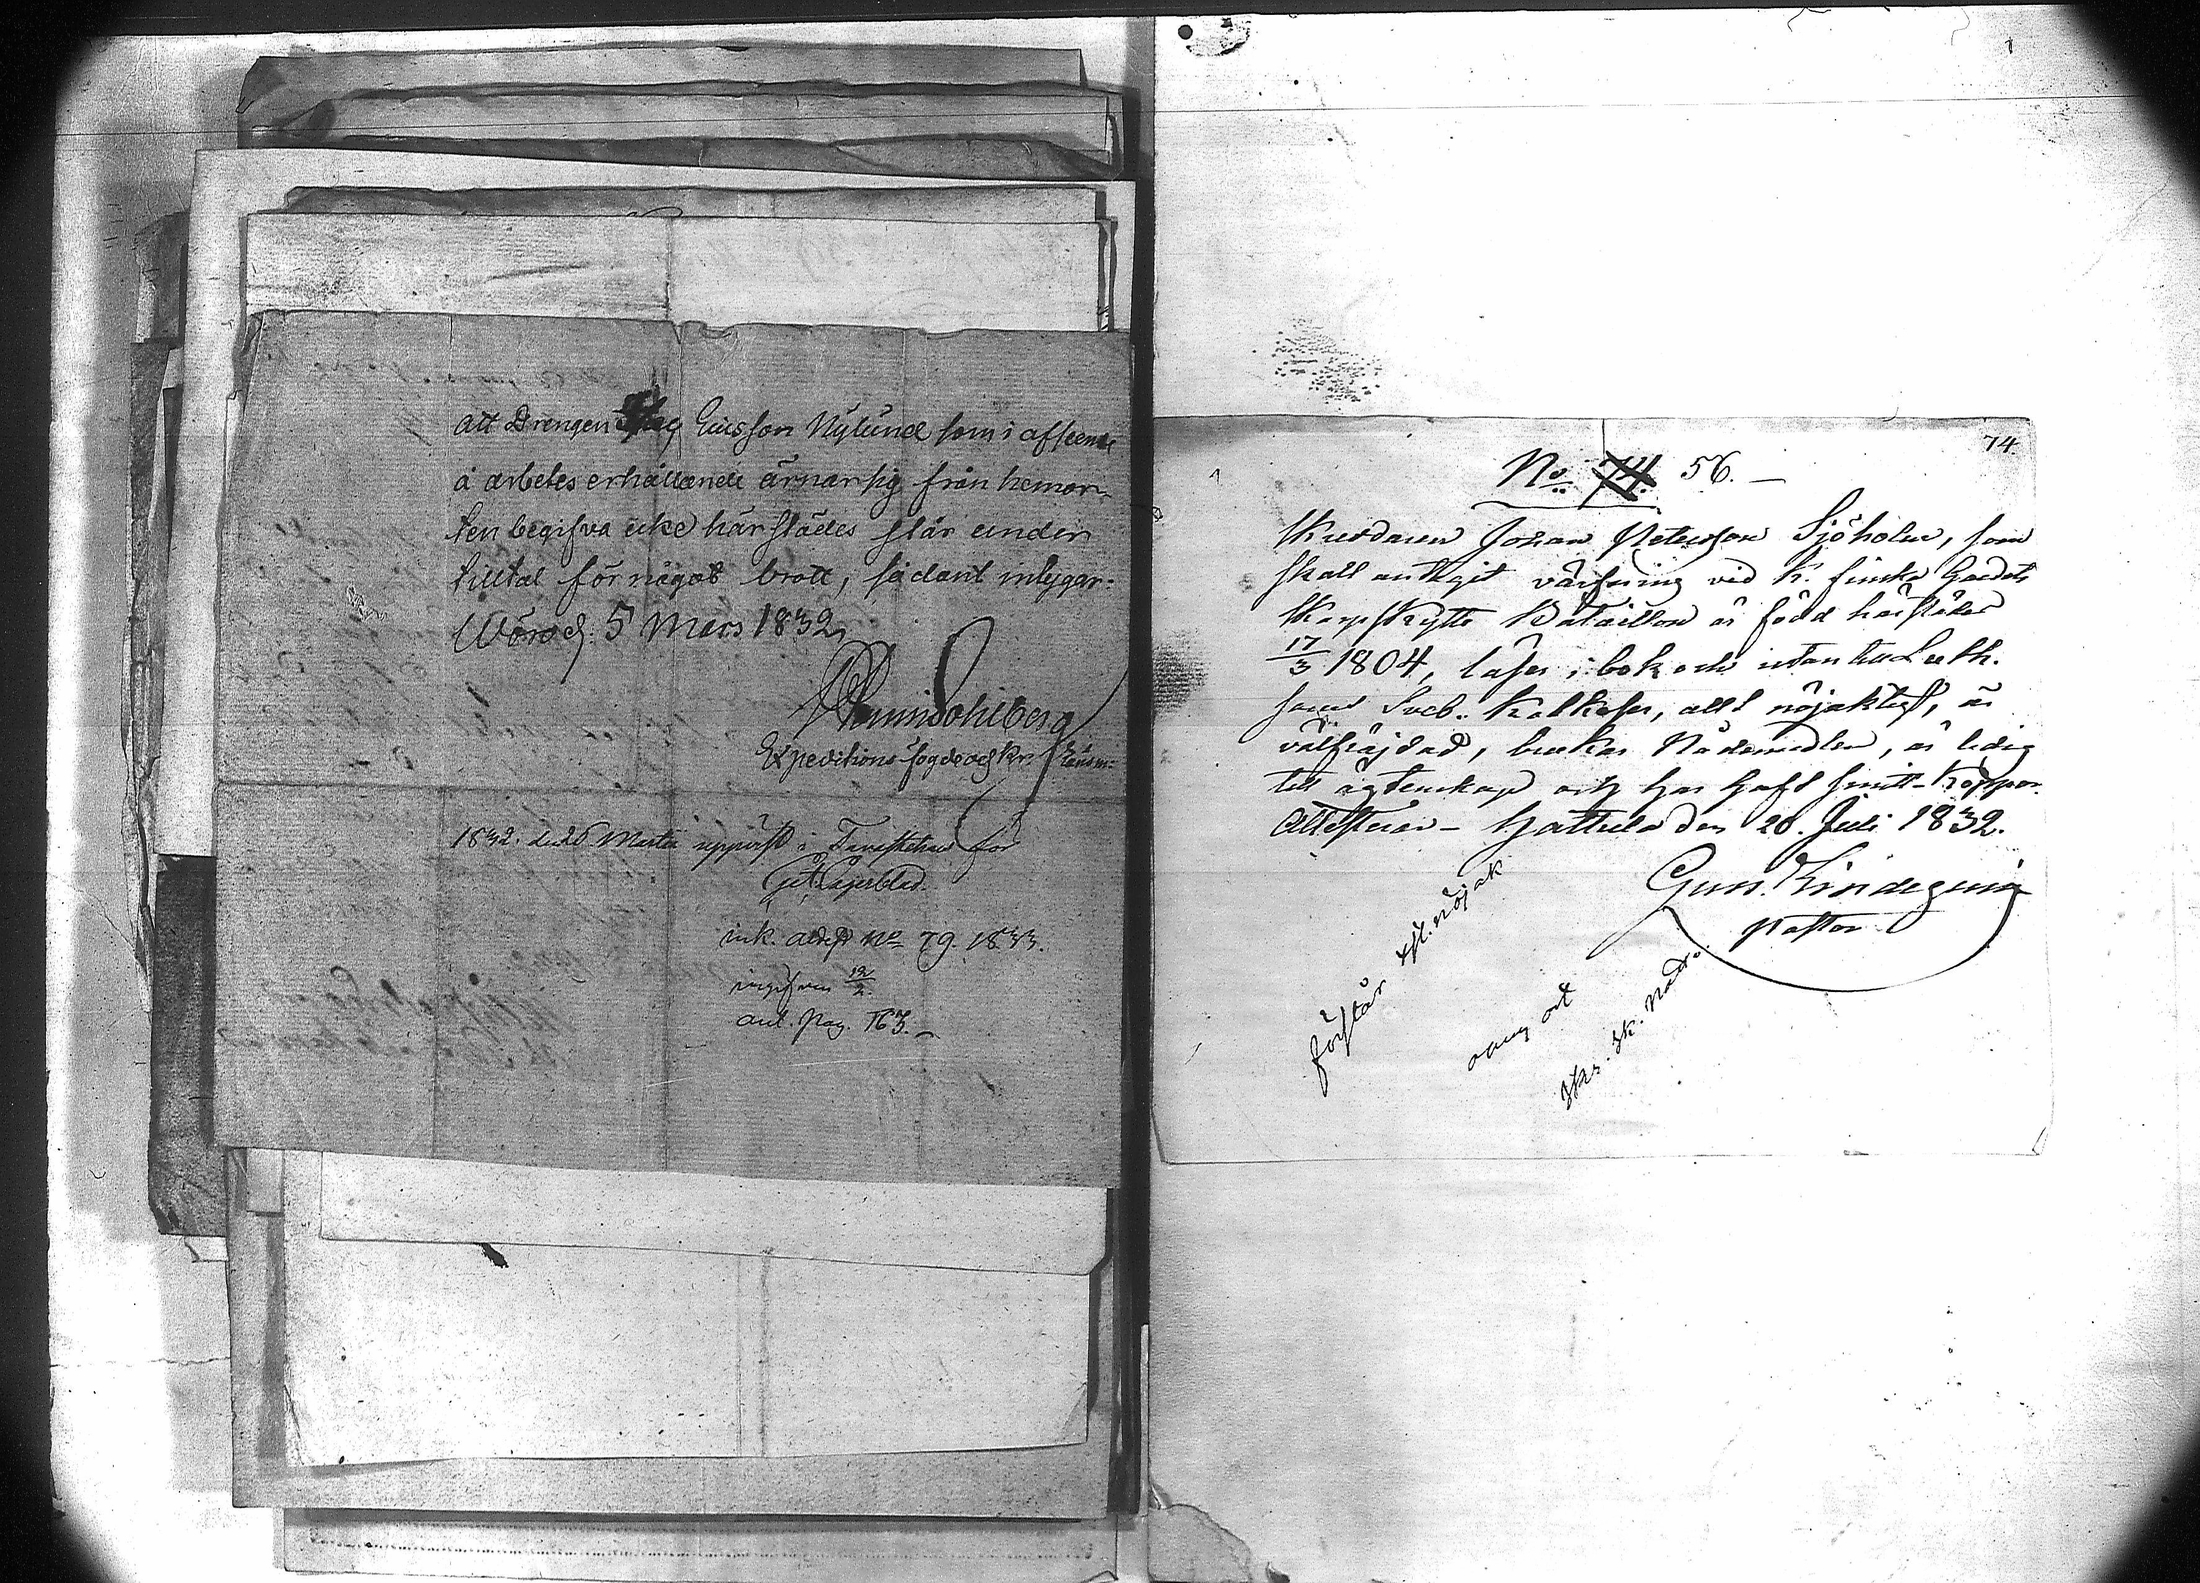 Att Drengen Ericsson Nylund som i afseende
å arbetes erhållande ärnar sig från hemor-
ten begifva icke härstädes står under
tilltal för något brott, sådant intygar:
Wörå d. 5 Mars 1832,
Expeditions fogde och Kr. Länsm:
1832. den 26 Martii uppvist i Tavastehus för
Lagerblad.
ink. attest No 79. 1833.
ingifven 12/2.
ant. pag. 163.
74.
No 74. 56.
Johan Petersson Sjöholm, som
skall antagit värfning vid K. finska Gardets
Skarpskytte Bataillon är född härstädes
17/3 1804, läser i bok och utantill Luth.
samt Sveb. Katkeser, allt nöjaktigt, är
välfräjdad, brukar Nådemedlen, är ledig
till ägtenskap och har haft Smitt-Koppor.
Attesterar - Hattula den 20. Juli 1832.
Pastor
förstår xst. nöjak